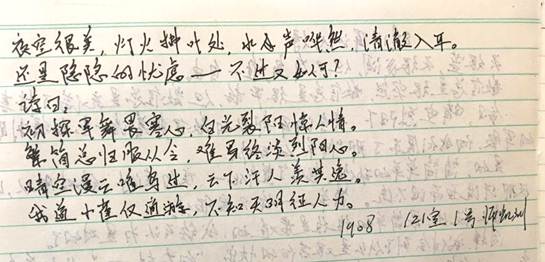 夜空很美，灯火掛叶处，水声哗然，清澈入耳。
还是隐隐的忧虑——不过又如何？
诗曰：
初探军舞畏寒心，白光裂阳惊人情。
繁简总归服从令，难异终淡烈阳心。
晴空漫云唯鸟过，云下汗人羡其逸。
我道十莲仅通，不知天明征人力。
1908 121室1号